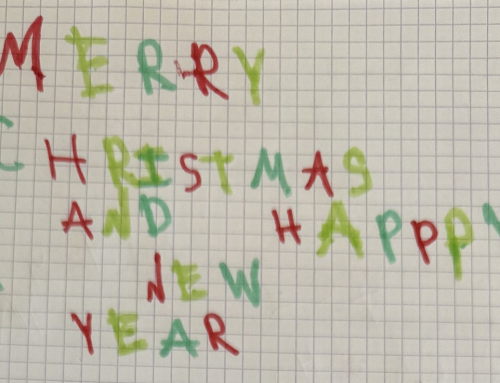 MERRY
CHRISTMAS
AND HAPPPY
NEW
YEAR